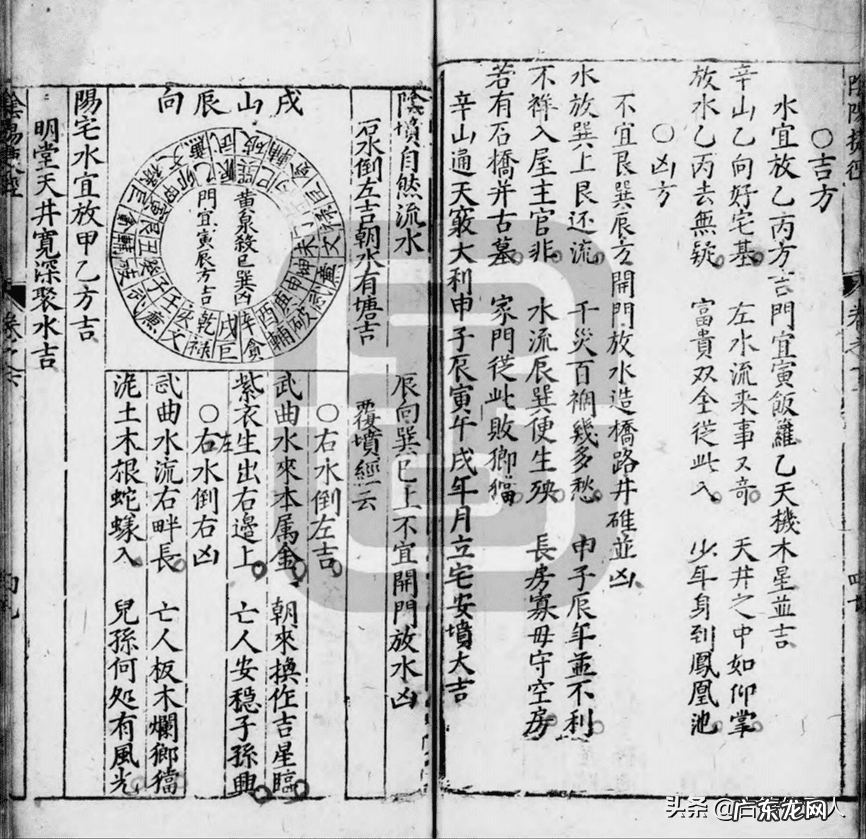 ○吉方
水宜放乙丙方吉門宜寅飯籮乙天機木星並吉
辛山乙向好宅基 左水流来事又竒 天井之中如仰掌
放水乙丙去無疑 富貴双全從此入 少年身到鳳凰池
○凶方
不宜艮巽辰方開門放水造橋路井碓並凶
水放巽上艮还流 千災百禍幾多愁 申子辰年並不利
不祥入屋主官非 水流辰巽便生殃 長房寡母守空房
若有石橋并古墓 家門從此敗鄉
辛山通天竅大利申子辰寅午戌年月立宅安墳大吉
戌山辰向
陰墳自然流水 辰向巽巳上不宜開門放水凶
石水倒左吉朝水有塘吉 覆墳經云
黄泉殺巳巽凶
門宜寅辰方吉
○右水倒左吉
武曲水來本属金 朝來換作吉星臨
紫衣生出右邊上 亡人安穏子孫興
○右水倒右凶
左
武曲水流右畔長 亡人板木爛
泥土木根蛇蟻入 兒孫何処有風光
陽宅水宜放甲乙方吉
明堂天井寛深聚水吉
头条 @广东龙网